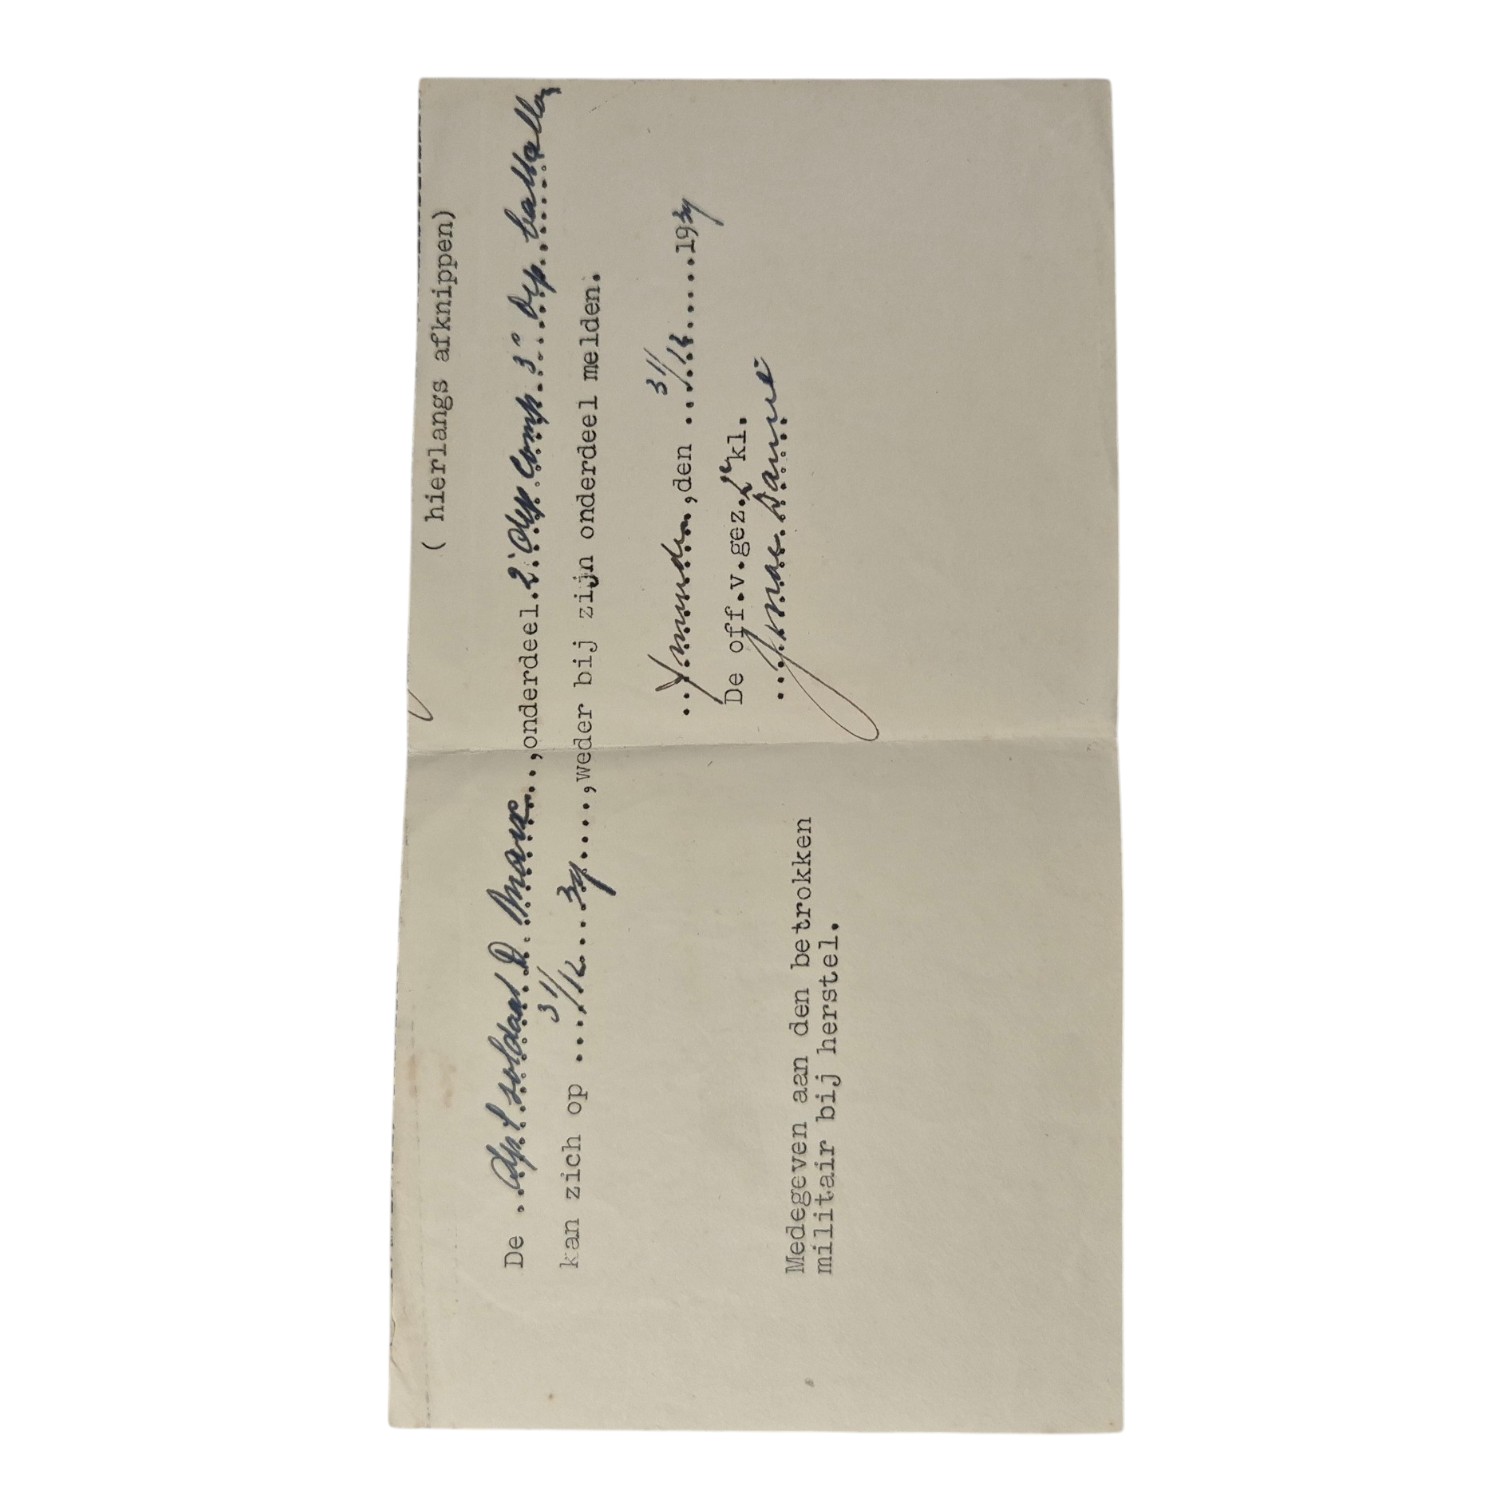 ( hierlangs afknippen)
De .dpl. soldaat D. Marx..,onderdeel.2e Dep Comp. 3e Dep. bataillon
kan zich op ...31/12...39....,weder bij zijn onderdeel melden.
..IJmuiden.,den ..31/12......1939
De off.v.gez.2e kl.
Medegeven aan den betrokken
militair bij herstel.